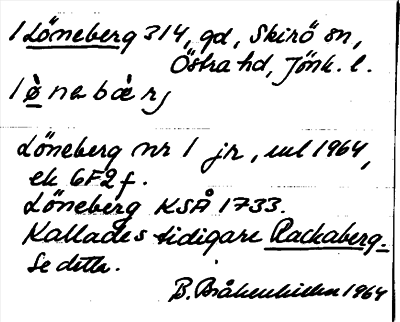 1 Löneberg 314, gd, Skirö sn,
Östra hd, Jönk. l.
Löneberg nr 1 jr, 1964,
ek 6F2f.
Löneberg KSÅ 1733.
Kallades tidigare Rackaberg.
Se detta.
B. 1964